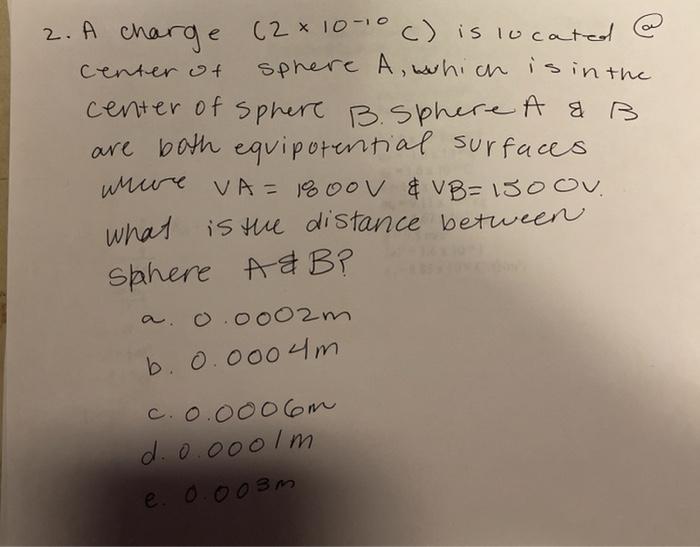 2. A charge (2 x 10-10 C) is located @
center of sphere A, which is in the
center of sphere B. Sphere A & B
are both equipotential surfaces
where VA = 1800V & VB= 1500V.
what is the distance between
sphere A & B?
a. 0.0002m
b. 0.0004m
c. 0.0006m
d. 0.0001m
e. 0.003m